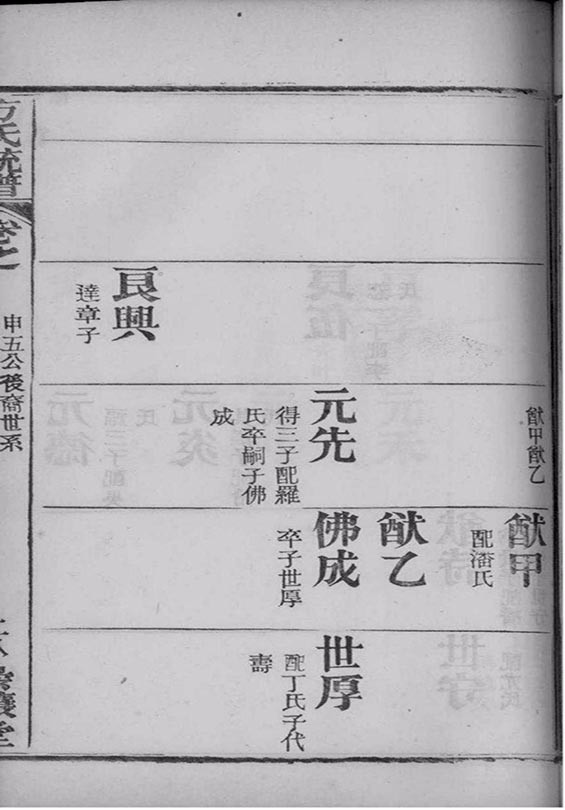 艮興
達章子
猷甲猷乙
元先
得三子配羅
氏卒嗣子佛
成
猷甲
配潘氏
猷乙
佛成
卒子世厚
世厚
配丁氏子代
壽
方氏統譜
卷之
申五公後裔世系